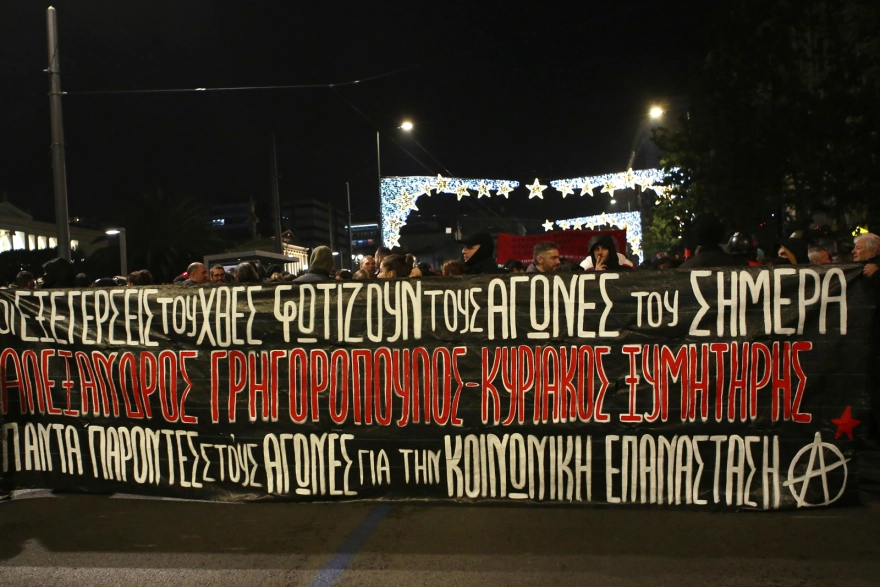 ΟΙ ΕΞΕΓΕΡΣΕΙΣ ΤΟΥ ΧΘΕΣ ΦΩΤΙΖΟΥΝ ΤΟΥΣ ΑΓΩΝΕΣ ΤΟΥ ΣΗΜΕΡΑ
ΑΛΕΞΑΝΔΡΟΣ ΓΡΗΓΟΡΟΠΟΥΛΟΣ-ΚΥΡΙΑΚΟΣ ΞΥΜΗΤΗΡΗΣ
ΠΑΝΤΑ ΠΑΡΟΝΤΕΣ ΣΤΟΥΣ ΑΓΩΝΕΣ ΓΙΑ ΤΗΝ ΚΟΙΝΩΝΙΚΗ ΕΠΑΝΑΣΤΑΣΗ Α